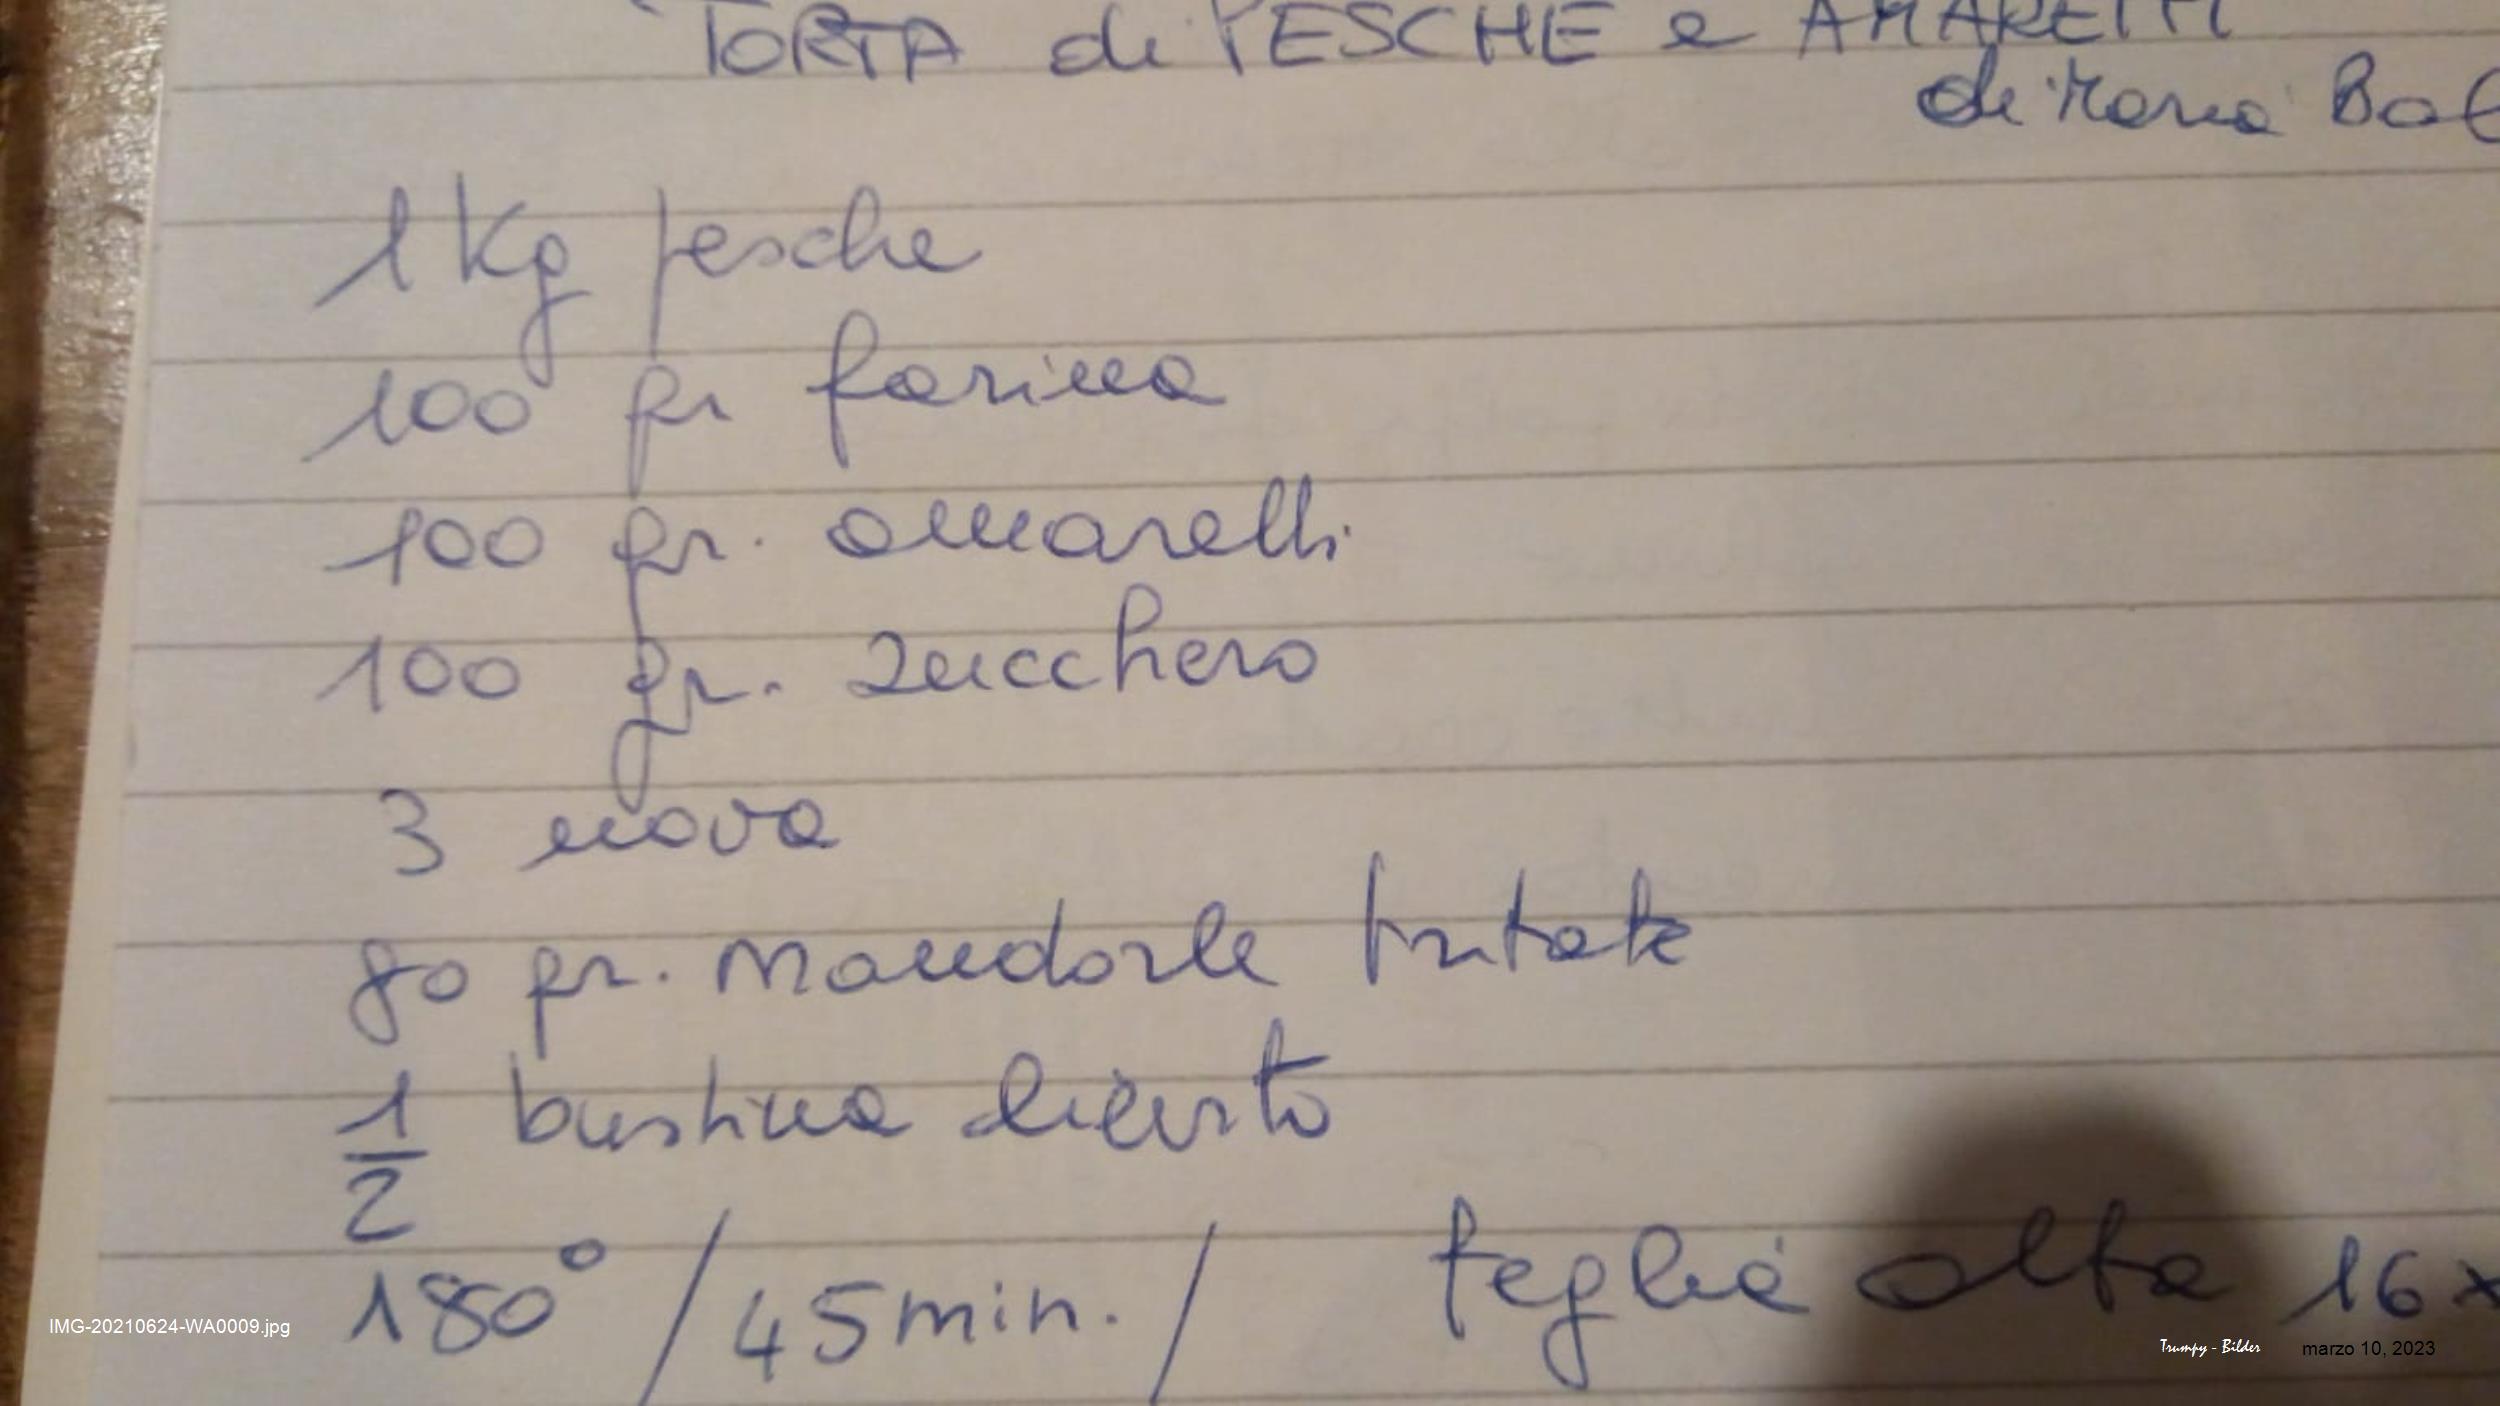 TORTA di PESCHE e AMARETTI
di Maria Bal
1 Kg pesche
100 gr farina
100 gr. amaretti
100 gr. zucchero
3 uova
80 gr. mandorle tritate
1/2 bustina lievito
180° / 45 min. / teglia alta 16x
IMG-20210624-WA0009.jpg
Trumpy - Bilder marzo 10, 2023